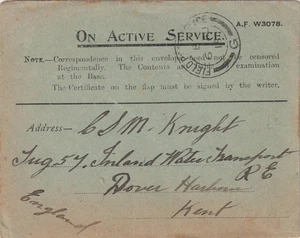 A.F. W3078.
ON ACTIVE SERVICE.
NOTE.—Correspondence in this envelope need not be censored
Regimentally. The Contents are examination
at the Base.
The Certificate on the flap must be signed by the writer.
FIELD
Address— CSM Knight
Tug 57, Inland Water Transport
R E
Dover Harbour
Kent
England